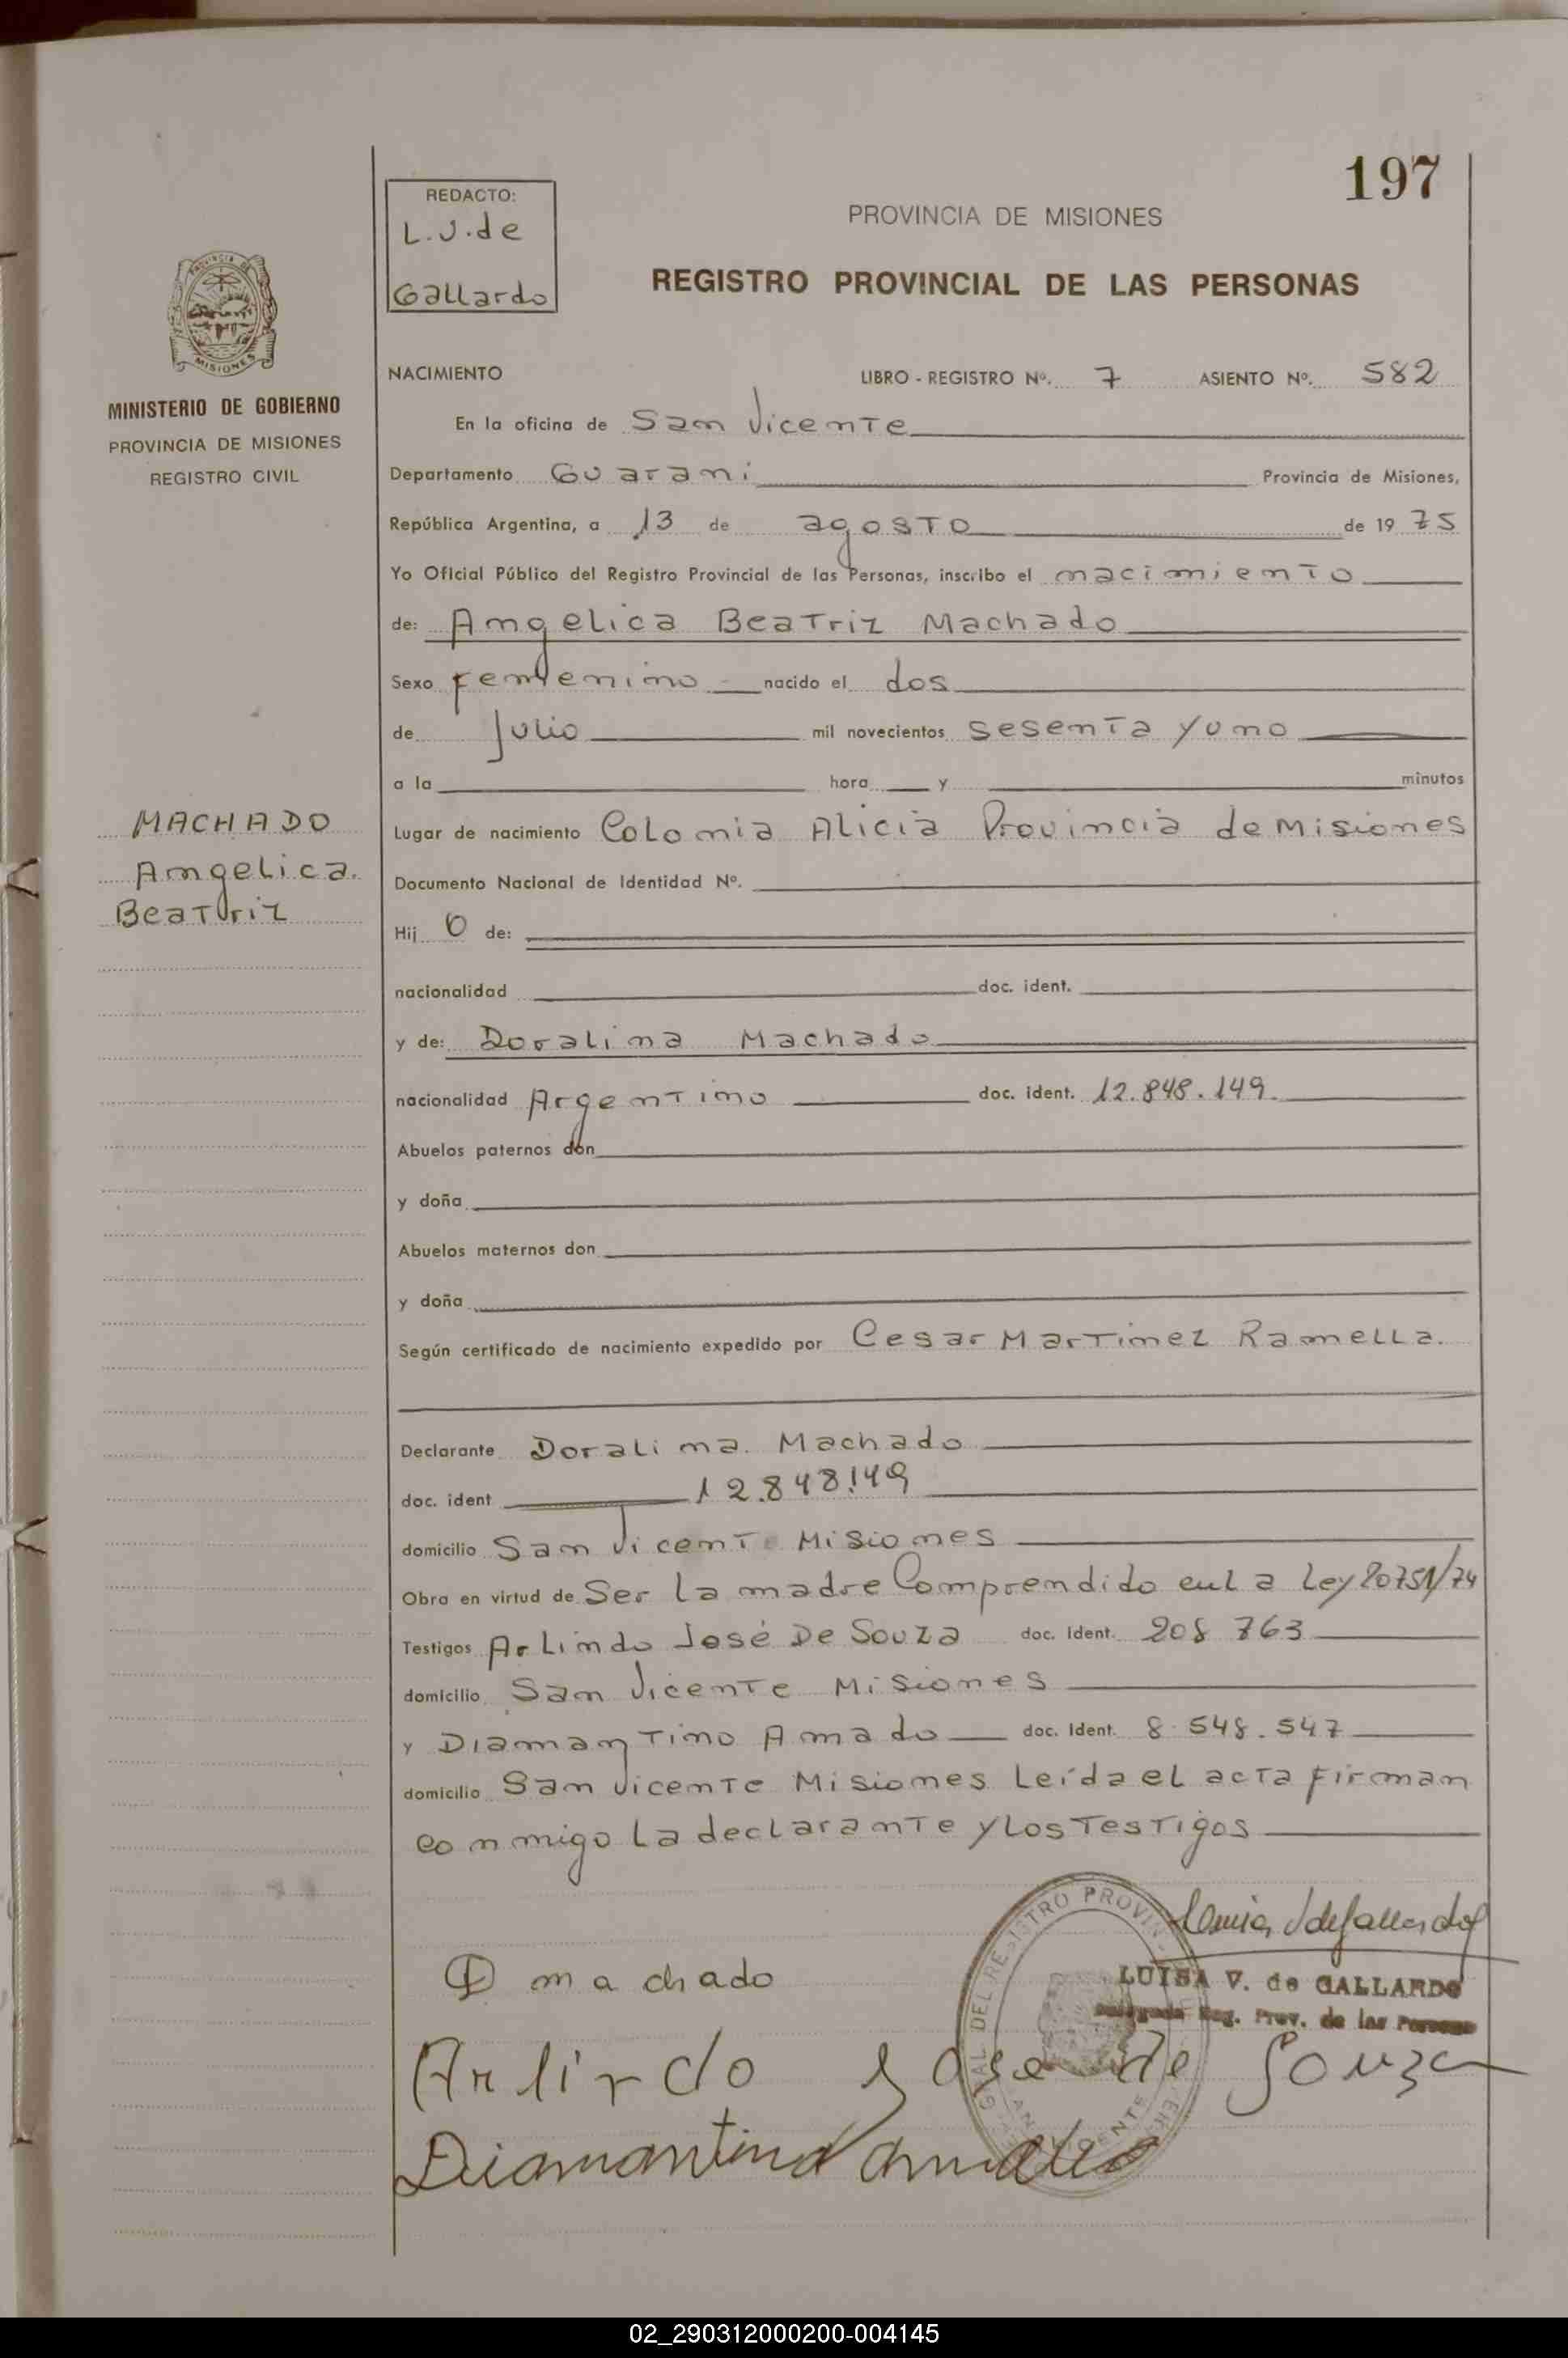 197
REDACTO:
L.V.de
Gallardo
PROVINCIA DE MISIONES
REGISTRO PROVINCIAL DE LAS PERSONAS
PROVINCIA DE
MISIONES
MINISTERIO DE GOBIERNO
PROVINCIA DE MISIONES
REGISTRO CIVIL
MACHADO
Angelica.
Beatriz
NACIMIENTO LIBRO - REGISTRO Nº. 7 ASIENTO Nº. 582
En la oficina de San Vicente
Departamento Guarani Provincia de Misiones,
República Argentina, a 13 de agosto de 1975
Yo Oficial Público del Registro Provincial de las Personas, inscribo el nacimiento
de: Angelica Beatriz Machado
Sexo femenino nacido el dos
de Julio mil novecientos sesenta y uno
a la hora y minutos
Lugar de nacimiento Colonia Alicia Provincia de Misiones
Documento Nacional de Identidad Nº.
Hij O de:
nacionalidad doc. ident.
y de: Doralina Machado
nacionalidad Argentino doc. ident. 12.848.149.
Abuelos paternos don
y doña
Abuelos maternos don
y doña
Según certificado de nacimiento expedido por Cesar Martinez Ramella.
Declarante Doralina. Machado
doc. ident 12.848.149
domicilio San Vicente Misiones
Obra en virtud de Ser la madre Comprendido en la Ley 20751/74
Testigos Arlindo José De Souza doc. Ident. 208 763
domicilio San Vicente Misiones
y Diamantino Amado doc. Ident. 8.548.547
domicilio San Vicente Misiones Leída el acta firman
conmigo la declarante y los testigos
Luisa V de Gallardo
LUISA V. de GALLARDO
Delegada Reg. Prov. de las Personas
D machado
Arlindo Jose de Souza
Diamantino Amado
02_290312000200-004145